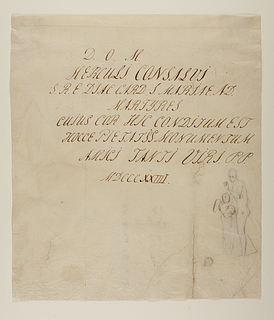 D. O. M.
HERCULI CONSALVI
S. R. E. DIAC CARD S. MARIAE AD.
MARTYRES
CUIUS COR HIC CONDITUM EST
HOCCE PIETATIS MONUMENTUM
AMICI TANTI VIRI PP
MDCCCXXIIII.